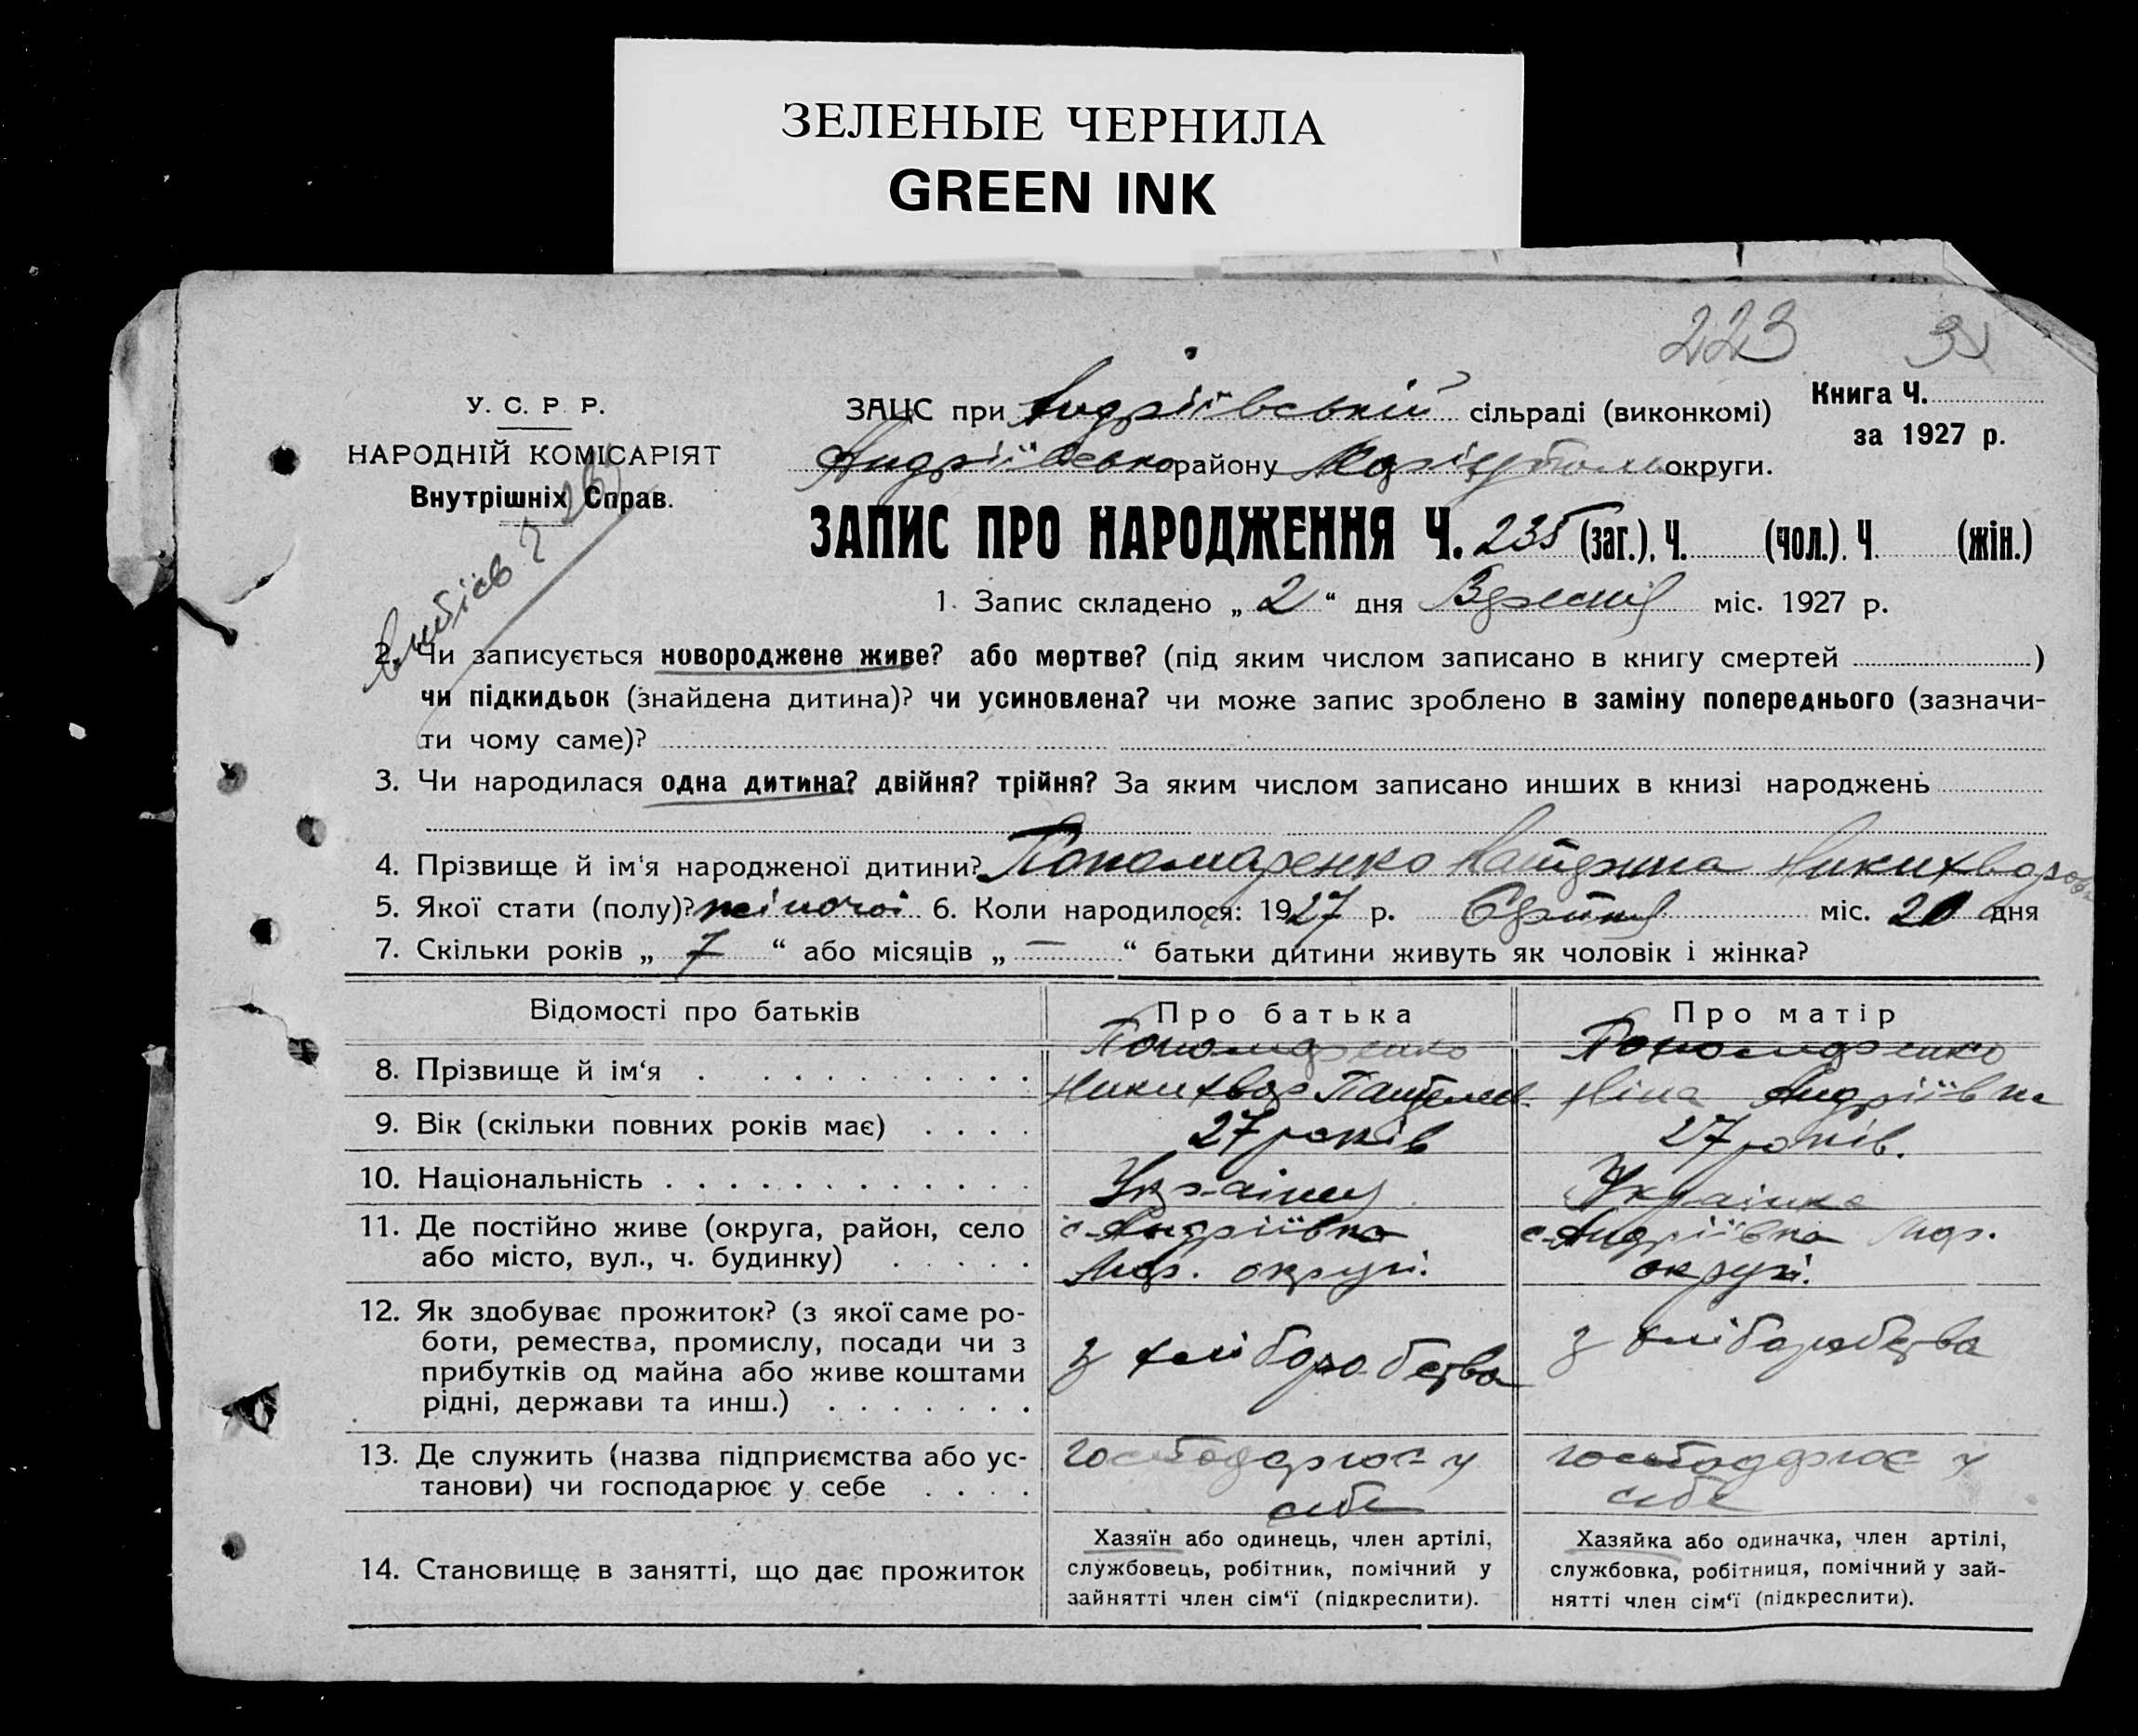 ЗЕЛЕНЫЕ ЧЕРНИЛА
GREEN INK
223
У. С. Р. Р.
НАРОДНІЙ КОМІСАРІЯТ
Внутрішніх Справ.
ЗАЦС при Андріївській сільраді (виконкомі)
Книга Ч.
за 1927 р.
Андріївсько району Маріупольс округи.
ЗАПИС ПРО НАРОДЖЕННЯ Ч. 235 (заг.), Ч. (чол.). Ч. (жін.)
1. Запис складено „ 2 “ дня Вересня міс. 1927 р.
2. Чи записується новороджене живе? або мертве? (під яким числом записано в книгу смертей )
чи підкидьок (знайдена дитина)? чи усиновлена? чи може запис зроблено в заміну попереднього (зазначи-
ти чому саме)?
3. Чи народилася одна дитина? двійня? трійня? За яким числом записано инших в книзі народжень
4. Прізвище й ім'я народженої дитини? Пономаренко Катерина Никихворовн
5. Якої стати (полу)? жіночої 6. Коли народилося: 1927 р. Серпня міс. 20 дня
7. Скільки років „ 7 “ або місяців „ — “ батьки дитини живуть як чоловік і жінка?
Відомості про батьків
Про батька
Про матір
8. Прізвище й ім‘я
Пономаренко
Никихвор Пантелей.
Пономаренко
Ніна Андріївна
9. Вік (скільки повних років має)
27 років
27 років.
10. Національність
Українец
Українка
11. Де постійно живе (округа, район, село
або місто, вул., ч. будинку)
с-Андріївка
Мар. округи.
с-Андріївка Мар.
округи.
12. Як здобуває прожиток? (з якої саме ро-
боти, ремества, промислу, посади чи з
прибутків од майна або живе коштами
рідні, держави та инш.)
з хліборобства
з хліборобства
13. Де служить (назва підприємства або ус-
танови) чи господарює у себе
господарює у
себе
господарює у
себе
14. Становище в занятті, що дає прожиток
Хазяїн або одинець, член артілі,
службовець, робітник, помічний у
зайнятті член сім‘ї (підкреслити).
Хазяйка або одиначка, член артілі,
службовка, робітниця, помічний у зай-
нятті член сім‘ї (підкреслити).